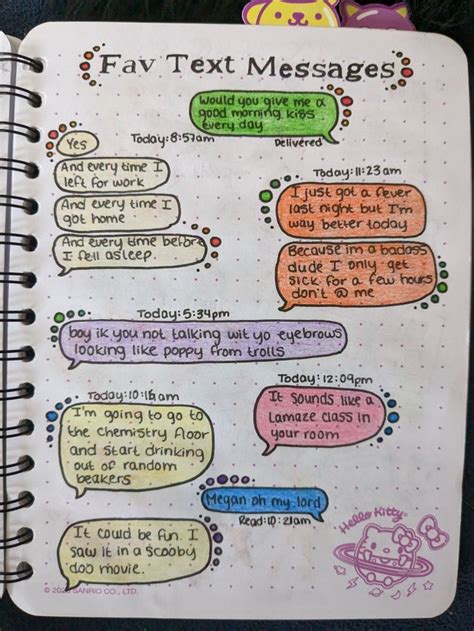 Fav Text Messages
Would you give me a
good morning kiss
every day
Today: 8:57am
Delivered
Yes
And every time I
left for work
And every time I
got home
And every time before
I fell asleep
Today: 11:23am
I just got a fever
last night but I'm
way better today
Because im a badass
dude I only get
sick for a few hours
don't @ me
Today: 5:34pm
boy ik you not talking wit yo eyebrows
looking like poppy from trolls
Today: 10:16am
I'm going to go to
the Chemistry floor
and start drinking
out of random
beakers
Today: 12:09pm
It sounds like a
Lamaze class in
your room
Megan oh my lord
Read: 10:21am
It could be fun. I
saw it in a scooby
doo movie.
Hello Kitty
SANRIO CO., LTD.